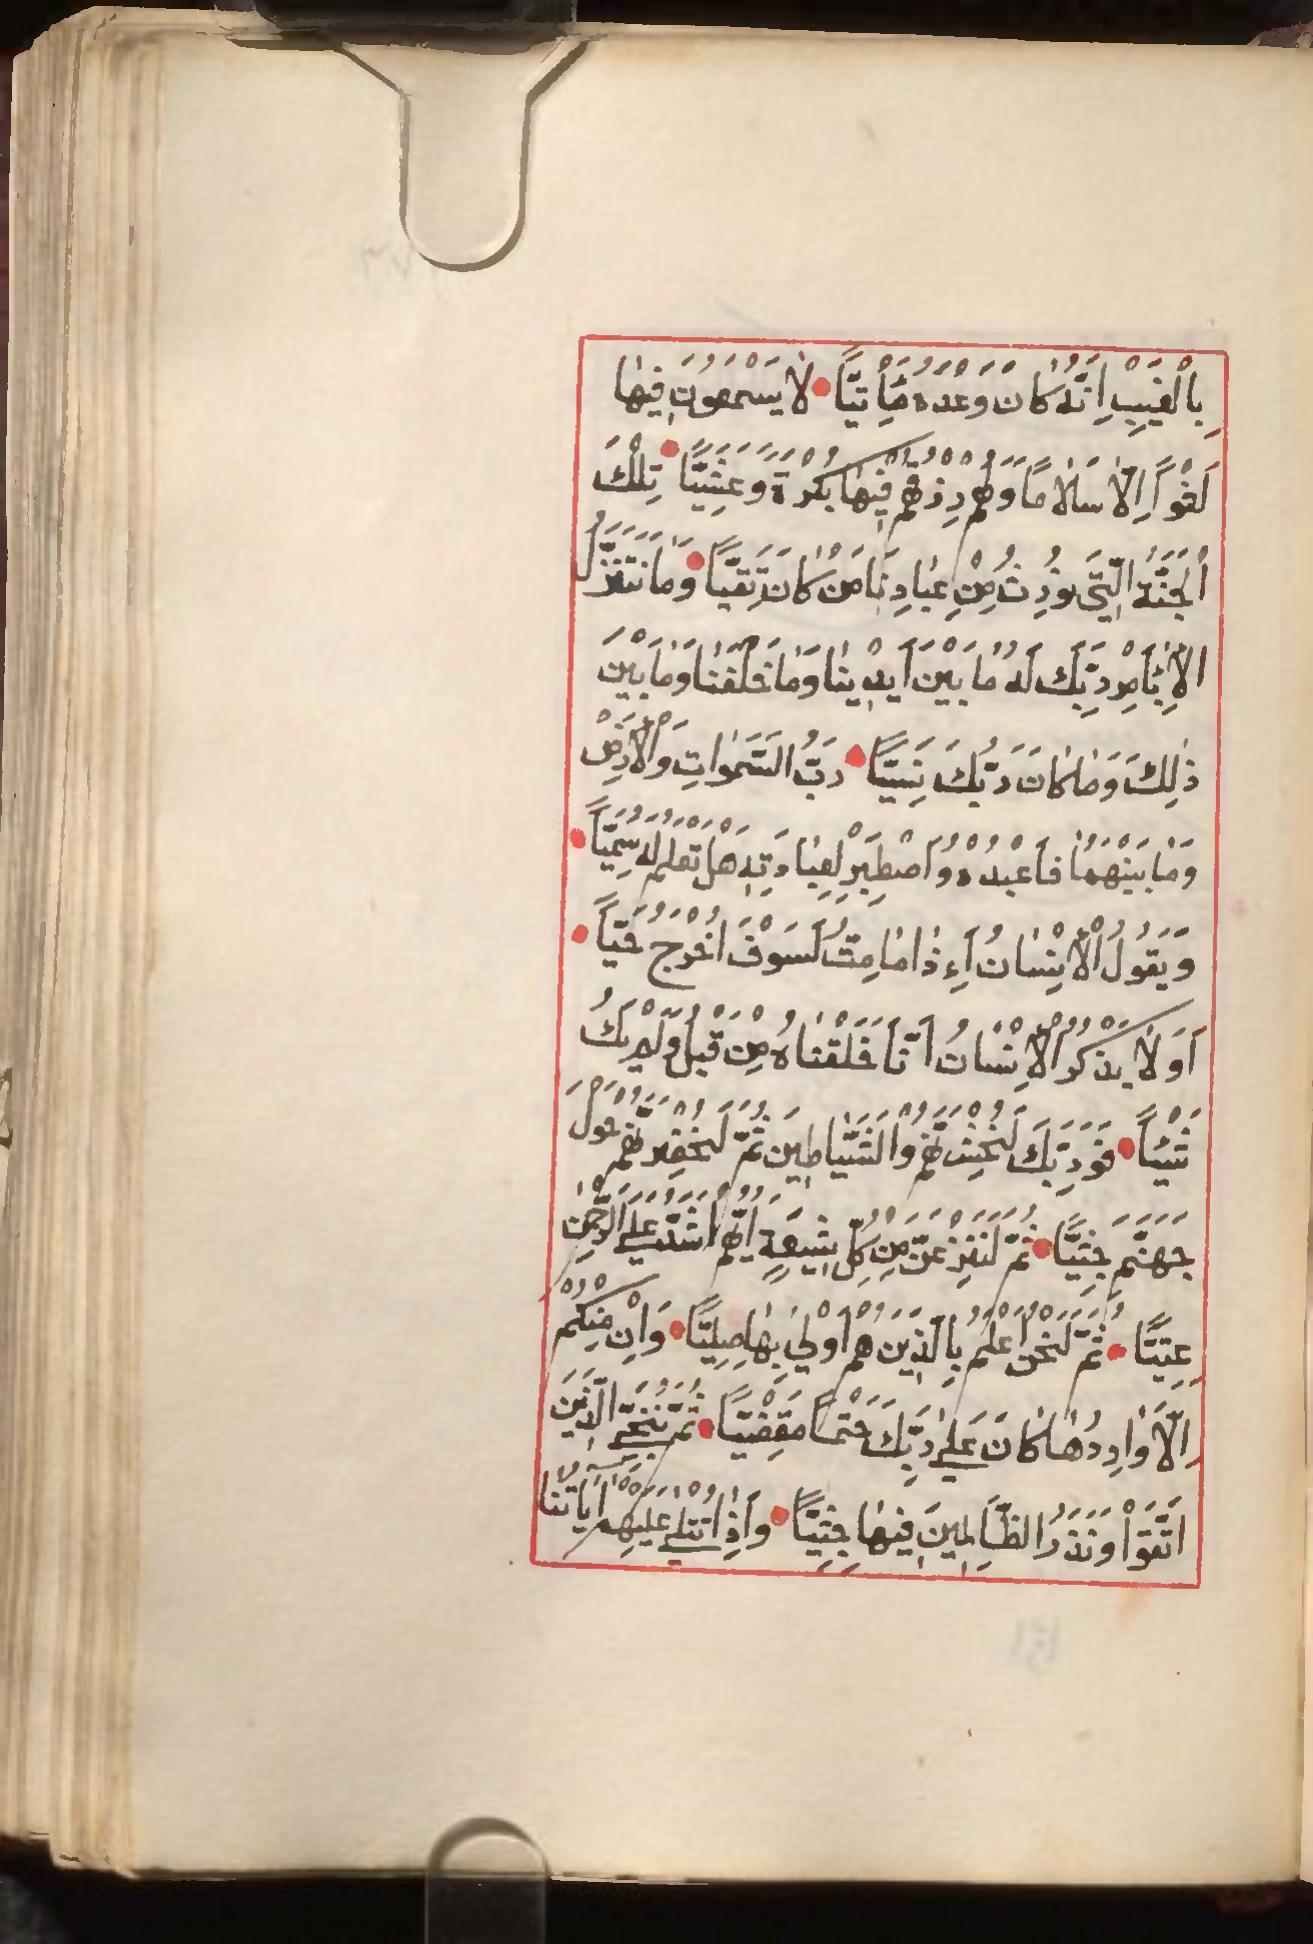 بِالْغَيْبِ اِنَّهُ كَانَ وَعْدُهُ مَأْتِيًّا لَا يَسْمَعُونَ فِيهَا
لَغْوًا اِلَّا سَلَامًا وَلَهُمْ رِزْقُهُمْ فِيهَا بُكْرَةً وَعَشِيًّا تِلْكَ
الْجَنَّةُ الَّتِي نُورِثُ مِنْ عِبَادِنَا مَنْ كَانَ تَقِيًّا وَمَا نَتَنَزَّلُ
اِلَّا بِأَمْرِ رَبِّكَ لَهُ مَا بَيْنَ اَيْدِينَا وَمَا خَلْفَنَا وَمَا بَيْنَ
ذٰلِكَ وَمَا كَانَ رَبُّكَ نَسِيًّا رَبُّ السَّمٰوَاتِ وَالْاَرْضِ
وَمَا بَيْنَهُمَا فَاعْبُدْهُ وَاصْطَبِرْ لِعِبَادَتِهِ هَلْ تَعْلَمُ لَهُ سَمِيًّا
وَيَقُولُ الْاِنْسَانُ اَءِذَا مَا مِتُّ لَسَوْفَ اُخْرَجُ حَيًّا
اَوَلَا يَذْكُرُ الْاِنْسَانُ اَنَّا خَلَقْنَاهُ مِنْ قَبْلُ وَلَمْ يَكُ
شَيْئًا فَوَرَبِّكَ لَنَحْشُرَنَّهُمْ وَالشَّيَاطِينَ ثُمَّ لَنُحْضِرَنَّهُمْ حَوْلَ
جَهَنَّمَ جِثِيًّا ثُمَّ لَنَنْزِعَنَّ مِنْ كُلِّ شِيعَةٍ اَيُّهُمْ اَشَدُّ عَلَى الرَّحْمٰنِ
عِتِيًّا ثُمَّ لَنَحْنُ اَعْلَمُ بِالَّذِينَ هُمْ اَوْلٰى بِهَا صِلِيًّا وَاِنْ مِنْكُمْ
اِلَّا وَارِدُهَا كَانَ عَلٰى رَبِّكَ حَتْمًا مَقْضِيًّا ثُمَّ نُنَجِّي الَّذِينَ
اتَّقَوْا وَنَذَرُ الظَّالِمِينَ فِيهَا جِثِيًّا وَاِذَا تُتْلٰى عَلَيْهِمْ اٰيَاتُنَا